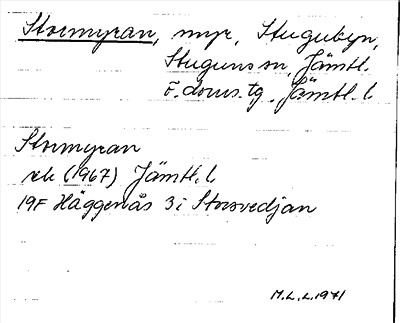 Stormyran, myr, Stugubyn,
Stuguns sn, Jämtl.
f. doms. tg, Jämtl. l.
Stormyran
ek (1967) Jämtl. l.
19F Häggenås 3 i Storsvedjan
M.L.L. 1971